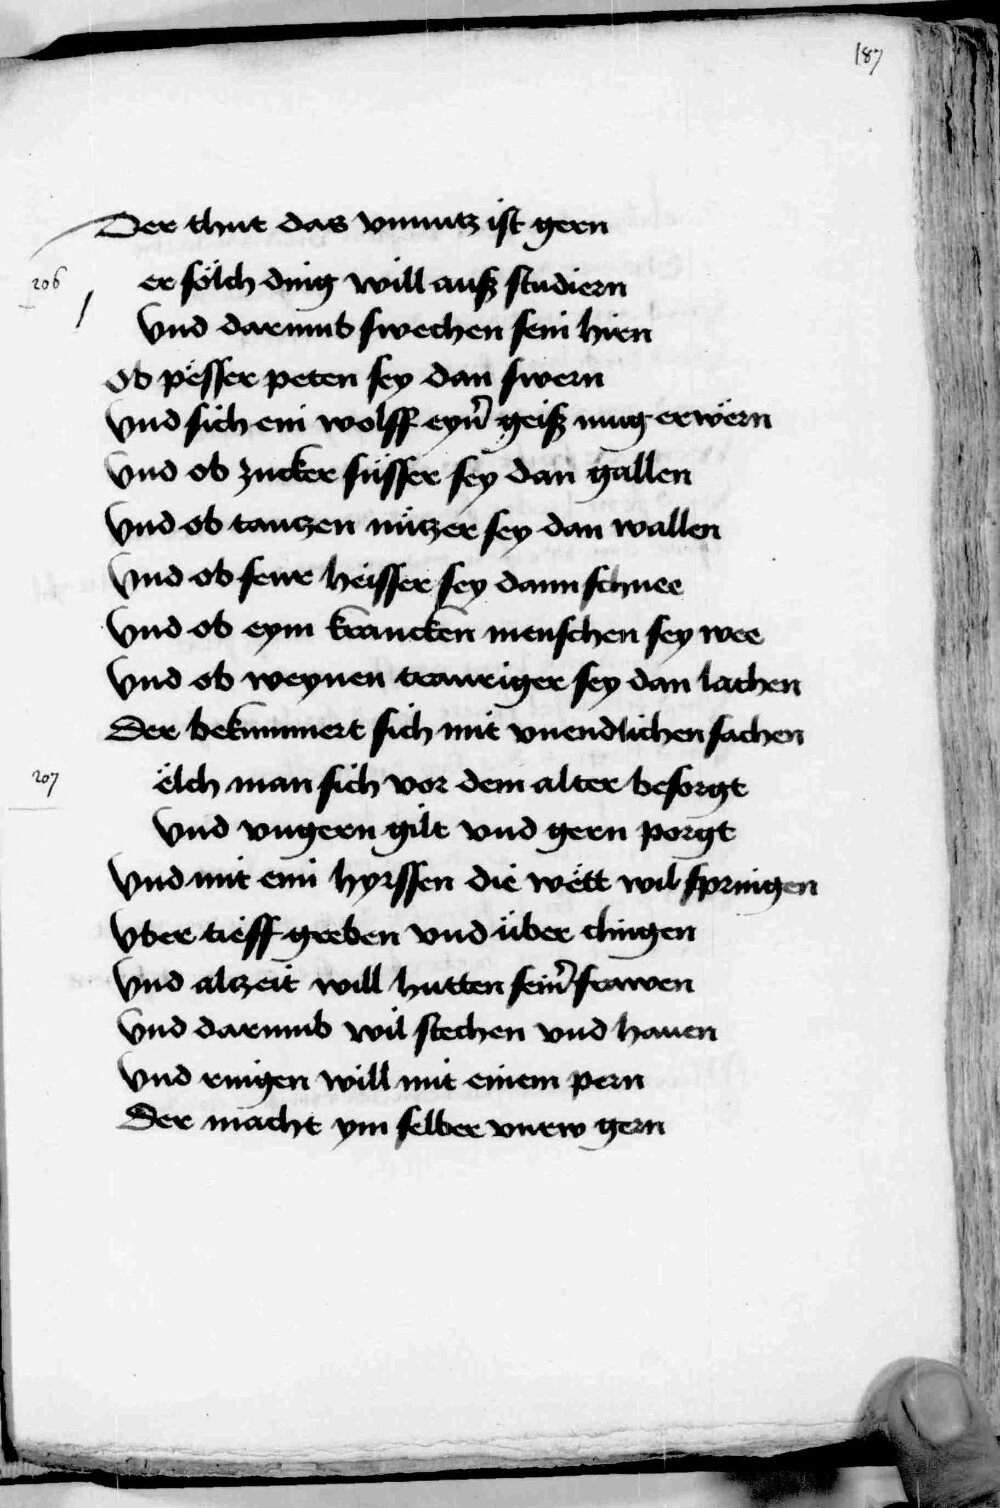 187
Der thut das vnnutz ist gern
206
er sölch ding will auß studiern
Vnd darumb swechen sein hirn
Ob pësser peten sey dan swern
Vnd sich ein wolff eyn̄ geiß mug erwern
Vnd ob zucker süsser sey dan gallen
Vnd ob tantzen nützer sey dan wallen
Vnd ob fewr heisser sey dann schnee
Vnd ob eym krancken menschen sey wee
Vnd ob weynen trawriger sey dan lachen
Der bekummert sich mit vnendlichen sachen
207
ëlch man sich vor dem alter besorgt
Vnd vngern gilt vnd gern porgt
Vnd mit eim hyrssen die wëtt wil springen
Vber tieff greben vnd über clingen
Vnd alzeit will hutten sein̄ frawen
Vnd darumb wil stechen vnd hauen
Vnd ringen will mit einem pern
Der macht ym selber vnrw gern